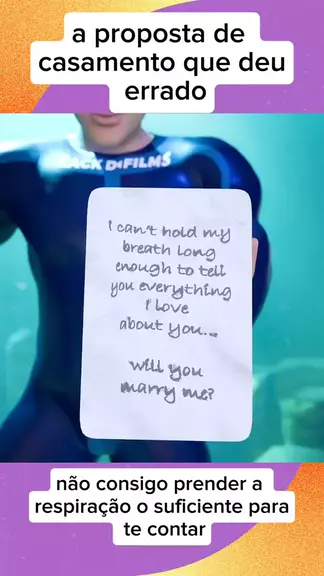 a proposta de
casamento que deu
errado
ACK DiFILMS
I can't hold my
breath long
enough to tell
you everything
I love
about you...
will you
marry me?
não consigo prender a
respiração o suficiente para
te contar